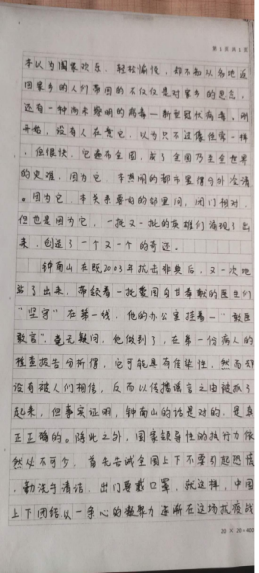 第1页共1页
本认为阖家欢乐、轻轻愉悦,却不知从各地返
回家乡的人们带回的不仅仅是对家乡的思念,
还有一种尚未发明的病毒—新型冠状病毒。刚
开始,没有人在意它,以为只不过像往常一样
,但很快,它遍布全国,成了全国乃至全世界
的灾难,因为它,本热闹的都市显得格外冷清
。因为它,本关系要好的邻里间,闭门相对,
但也是因为它,一批又一批的英雄们涌现了出
来,创造了一个又一个的奇迹。
钟南山在既2003年抗击非典后,又一次地
站了出来,带领着一批爱国自甘奉献的医生们
“坚守”在第一线,他的办公室挂着一“敢医
敢言”,毫无疑问,他做到了,在第一份病人的
检查报告分析得,它可能具有传染性,然而却
没有被人们相信,反而以传播谣言之由被抓了
起来,但事实证明,钟南山的话是对的,是真
正正确的。除此之外,国家领导性的执行力依
然必不可少,首先告诫全国上下不要引起恐慌
、勤洗手清洁,出门要戴口罩,就这样,中国
上下团结以一条心的凝聚力逐渐在这场抗疫战
20 × 20=400